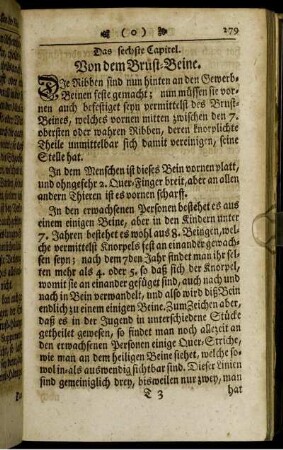 ( o ) 279
Das sechste Capitel.
Von dem Brust-Beine.
Die Ribben sind nun hinten an den Gewerb-
Beinen feste gemacht; nun müssen sie vor-
nen auch befestiget seyn vermittelst des Brust-
Beines, welches vornen mitten zwischen den 7.
obersten oder wahren Ribben, deren knorplichte
Theile unmittelbar sich damit vereinigen, seine
Stelle hat.
In dem Menschen ist dieses Bein vornen platt,
und ohngesehr 2. Quer-Finger breit, aber an allen
andern Thieren ist es vornen scharff.
In den erwachsenen Personen bestehet es aus
einem einigen Beine, aber in den Kindern unter
7. Jahren bestehet es wohl aus 8. Beingen, wel-
che vermittelst Knorpels fest an einander gewach-
sen seyn; nach dem 7den Jahr findet man ihr sel-
ten mehr als 4. oder 5. so daß sich der Knorpel,
womit sie an einander gefüget sind, auch nach und
nach in Bein verwandelt, und also wird diß Bein
endlich zu einem einigen Beine. Zum Zeichen aber,
daß es in der Jugend in unterschiedene Stücke
getheilet gewesen, so findet man noch allezeit an
den erwachsenen Personen einige Quer-Striche,
wie man an dem heiligen Beine siehet, welche so-
wol in- als auswendig sichtbar sind. Dieser Linien
sind gemeiniglich drey, bisweilen nur zwey, man
T 3 hat